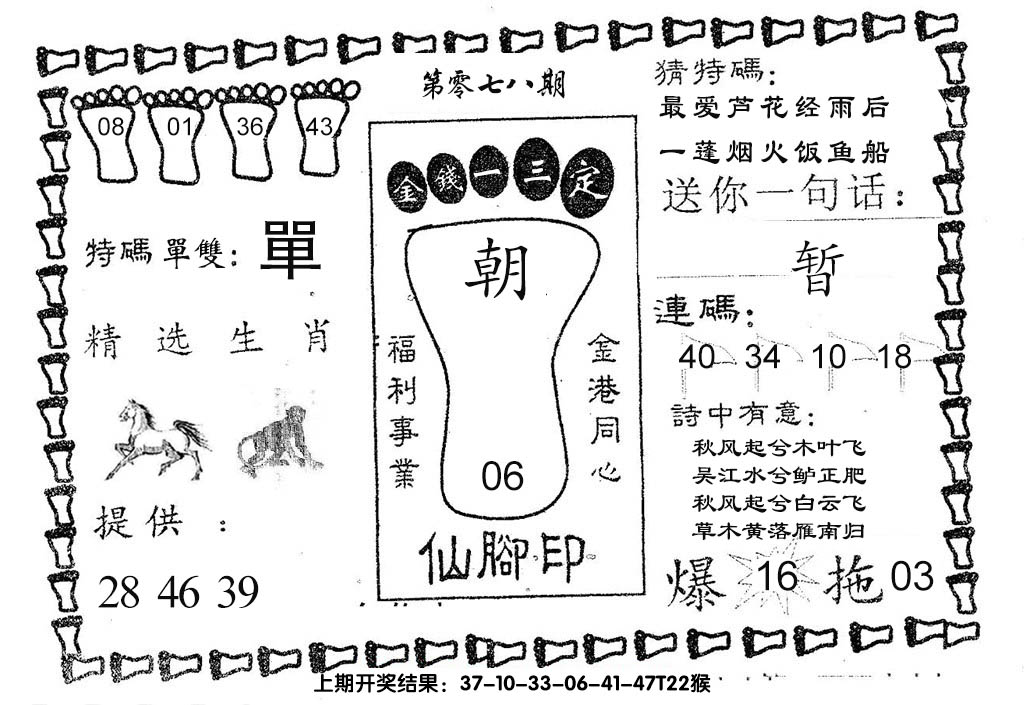 第零七八期
08 01 36 43
特碼單雙：單
精选生肖
提供：
28 46 39
金錢一三定
朝
福利事業
金港同心
06
仙腳印
猜特碼：
最爱芦花经雨后
一蓬烟火饭鱼船
送你一句话：
暂
連碼：
40 34 10 18
詩中有意：
秋风起兮木叶飞
吴江水兮鲈正肥
秋风起兮白云飞
草木黄落雁南归
爆 16 拖 03
上期开奖结果：37-10-33-06-41-47T22猴